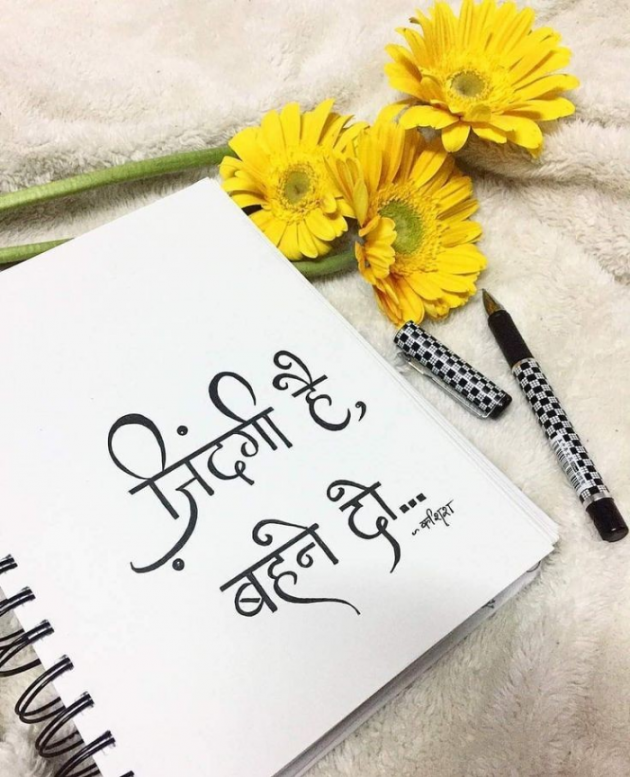 ज़िंदगी है,
बहने दो...
~काशिश